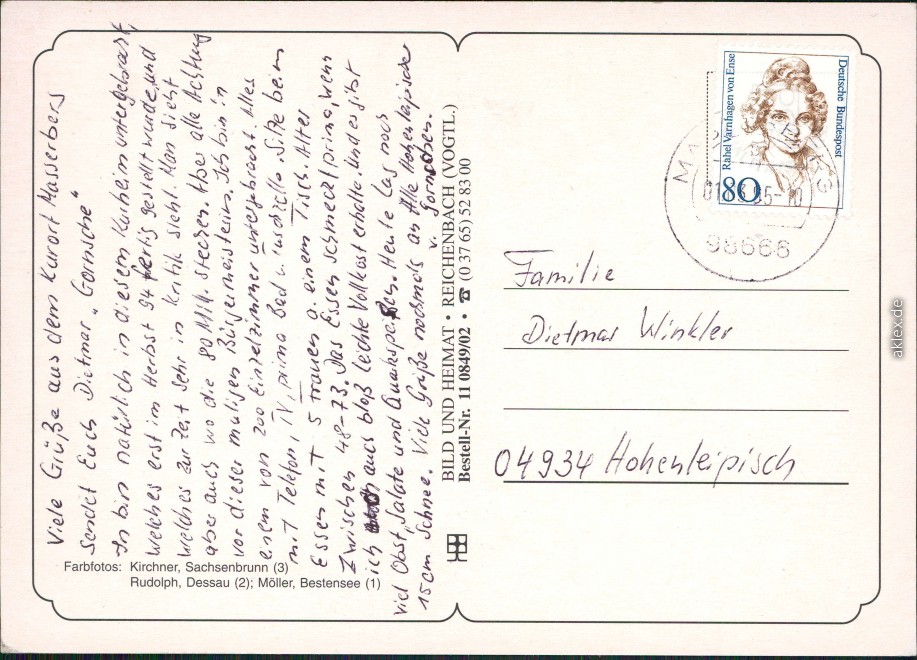 Viele Grüße aus dem Kurort Masserberg
sendet Euch Dietmar „Gornsche"
Ich bin natürlich in diesem Kurheim untergebracht,
welches erst im Herbst 94 fertig gestellt wurde und
welches zur Zeit sehr in Kritik steht. Man sieht
aber auch wo die 80 Mill. stecken. Also alle Achtung
vor dieser maligen Bürgermeisterin. Ich bin in
einem von 200 Einzelzimmer untergebracht. Alles
mit Telefon, TV, prima Bad u. Sitze beim
Essen mit 5 Frauen a. einem Tisch. Alter
zwischen 48-73. Das Essen schmeckt prima, wenn
ich auch bloß leichte Vollkost erhalte. Und es gibt
viel Obst, Salate und Quarkspeisen. Heute lag noch
15cm Schnee. Viele Grüße nochmals an Alle Hohenleipischer
v. Gornschen.
Farbfotos: Kirchner, Sachsenbrunn (3)
Rudolph, Dessau (2); Möller, Bestensee (1)
BILD UND HEIMAT • REICHENBACH (VOGTL.)
Bestell-Nr. 11 0849/02 • ☎ (0 37 65) 52 83 00
Rahel Varnhagen von Ense
Deutsche Bundespost
80
98666
Familie
Dietmar Winkler
04934 Hohenleipisch
aklex.de